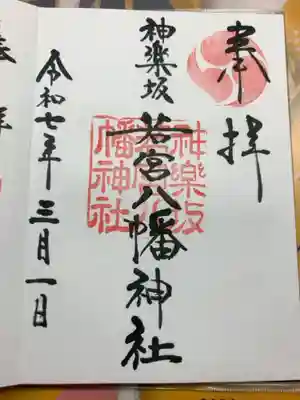 奉拝
神楽坂
若宮八幡神社
神楽坂
若宮八
幡神社
令和七年三月一日
拝